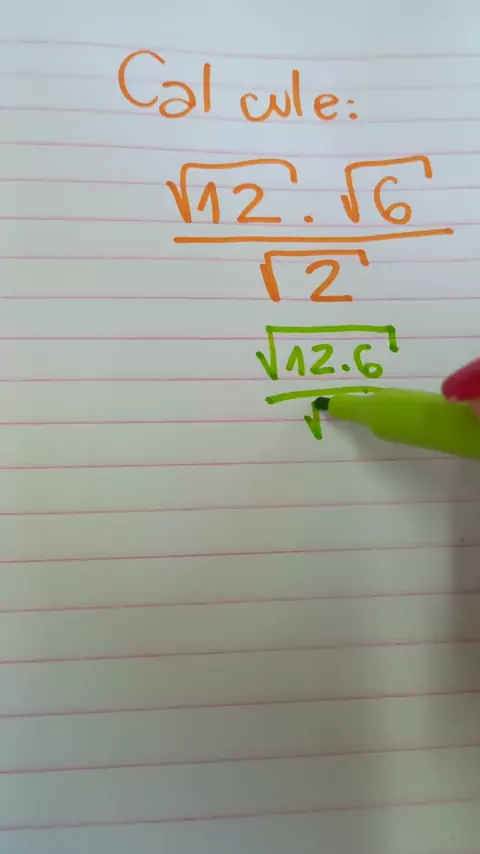 Calcule:
√12 . √6
√2
√12.6
√